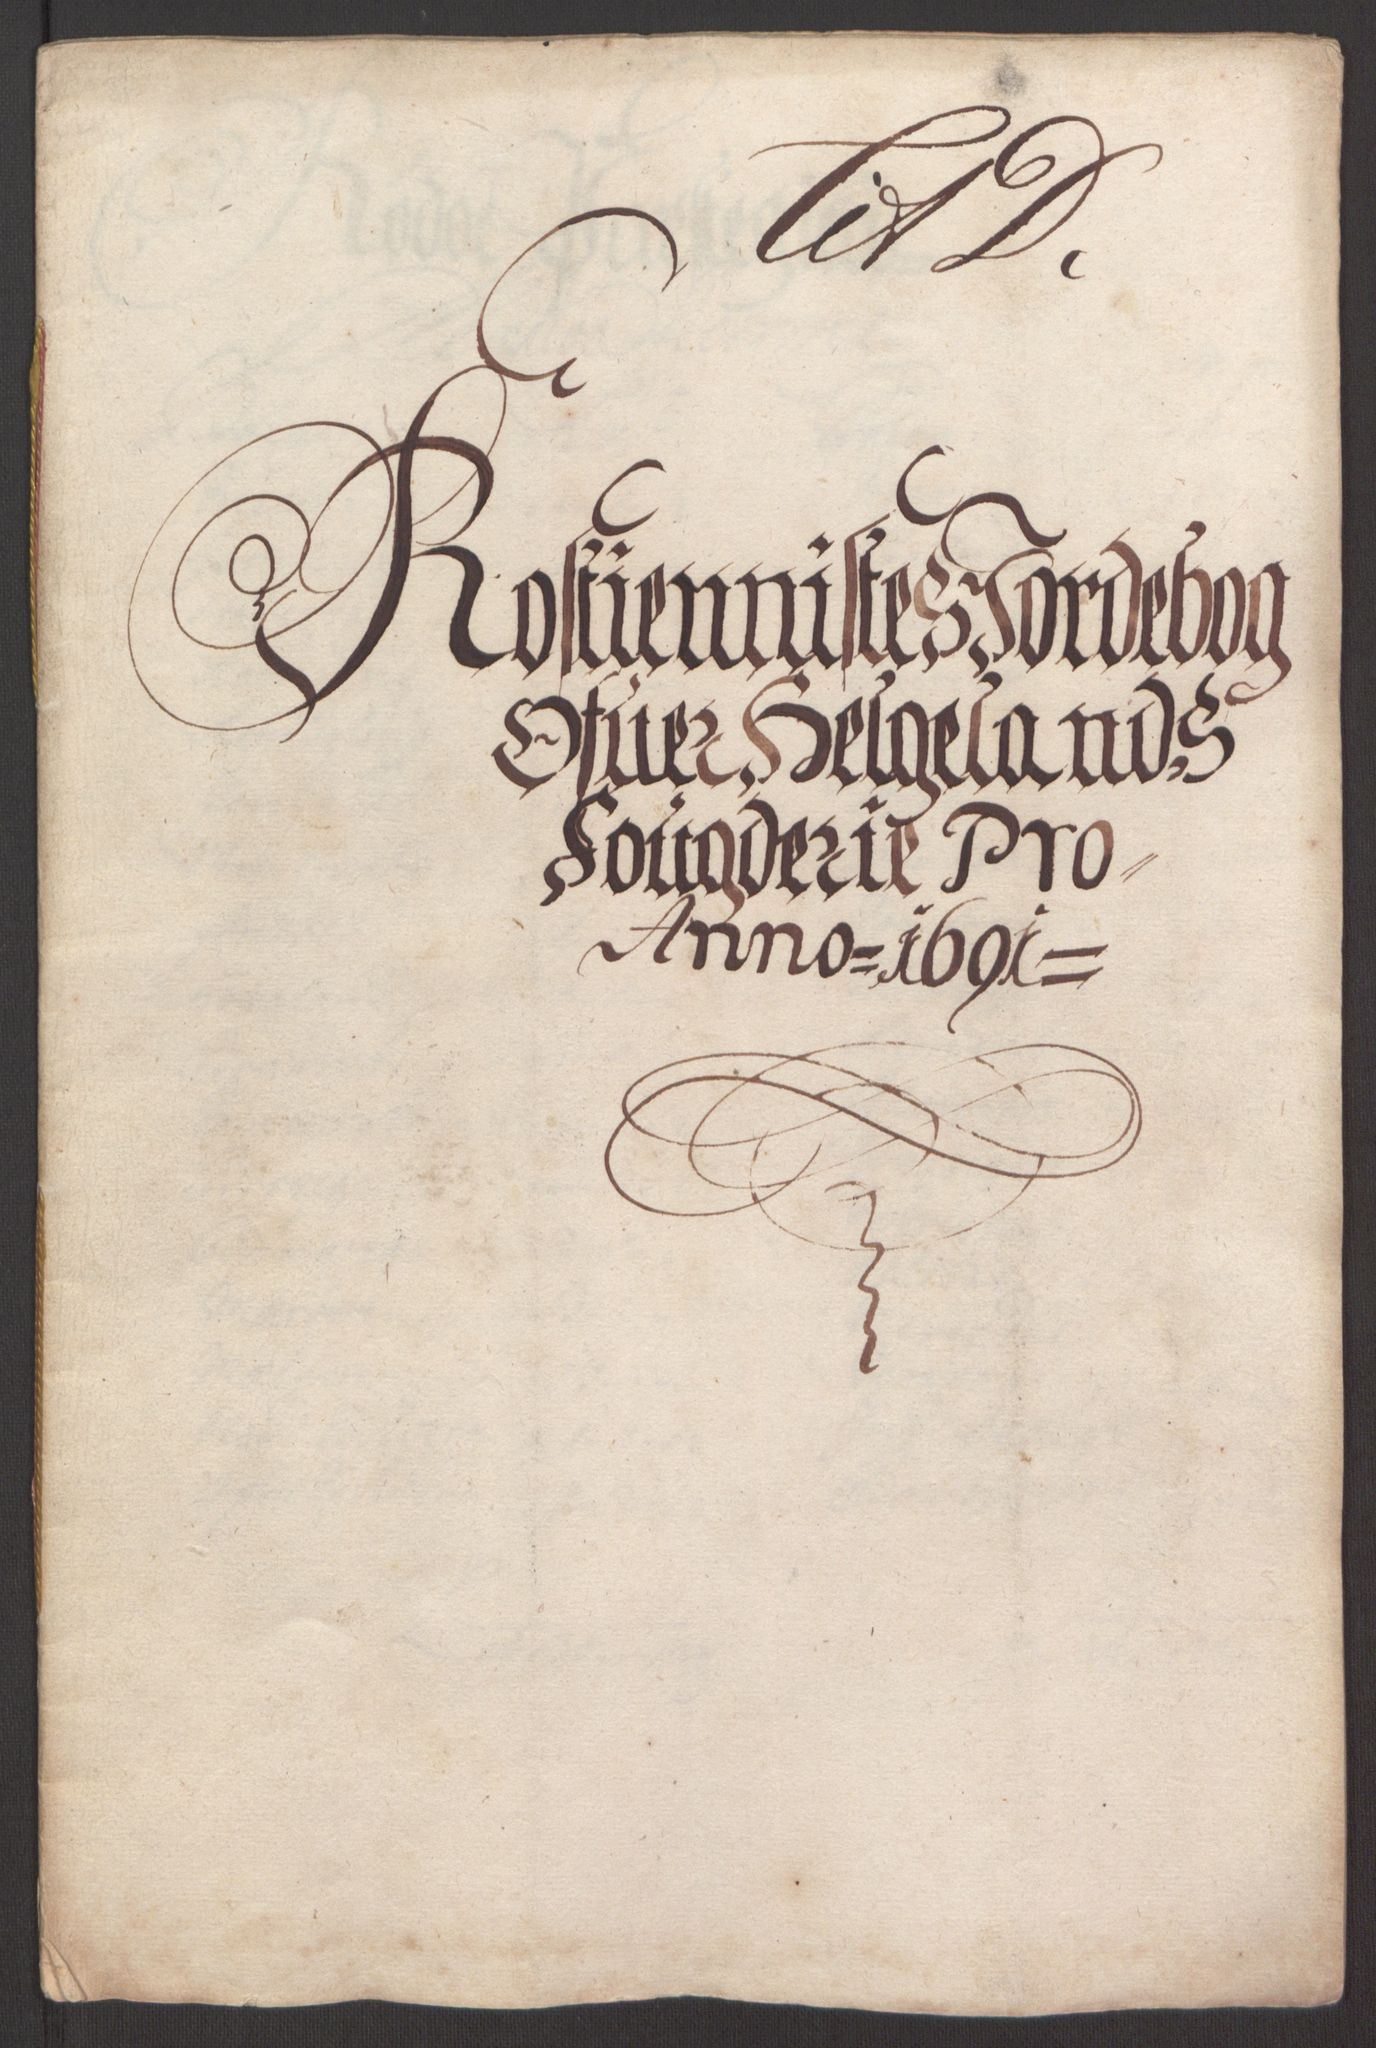 Lit D.
Rostiennistes Jordebog
Ofuer Helgelands
Fougderie Pro
Anno = 1691 =